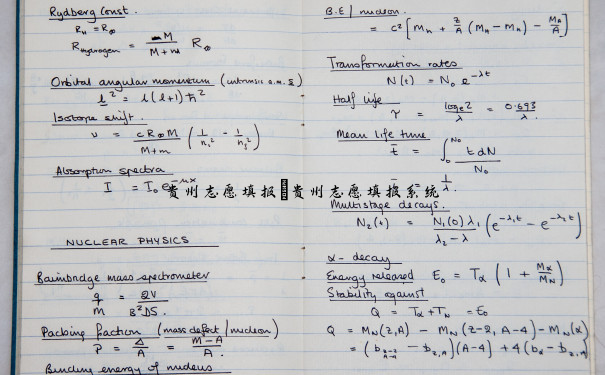 Rydberg Const.
R_H = R_∞
R_Hydrogen = M / (M + m) R_∞
Orbital angular momentum (intrinsic a.m. s)
l² = l(l+1) ħ²
Isotope shift.
ν = cR_∞M / (M+m) (1/n₁² - 1/n₂²)
Absorption spectra
I = I₀ e^-μx
贵州志愿填报 贵州志愿填报系统
NUCLEAR PHYSICS
Bainbridge mass spectrometer
q/m = 2V / B²DS.
Packing fraction (mass defect / nucleon)
P = Δ/A = (M-A)/A.
Binding energy of nucleus
B.E / nucleon.
= c² [M_n + Z/A (M_H - M_n) - M_A/A]
Transformation rates
N(t) = N₀ e^-λt
Half life
τ = log_e 2 / λ = 0.693 / λ.
Mean life time
t̄ = ∫₀^N₀ t dN / N₀
= 1/λ.
Multistage decays.
N₂(t) = N₁(0) λ₁ / (λ₂ - λ) (e^-λ₁t - e^-λ₂t)
α - decay
Energy released E₀ = T_α (1 + M_α/M_N)
Stability against
Q = T_α + T_N = E₀
Q = M_N(Z,A) - M_N(Z-2, A-4) - M_N(α)
= (b_Z-2,A-4 - b_Z,A)(A-4) + 4(b_α - b_Z,A)